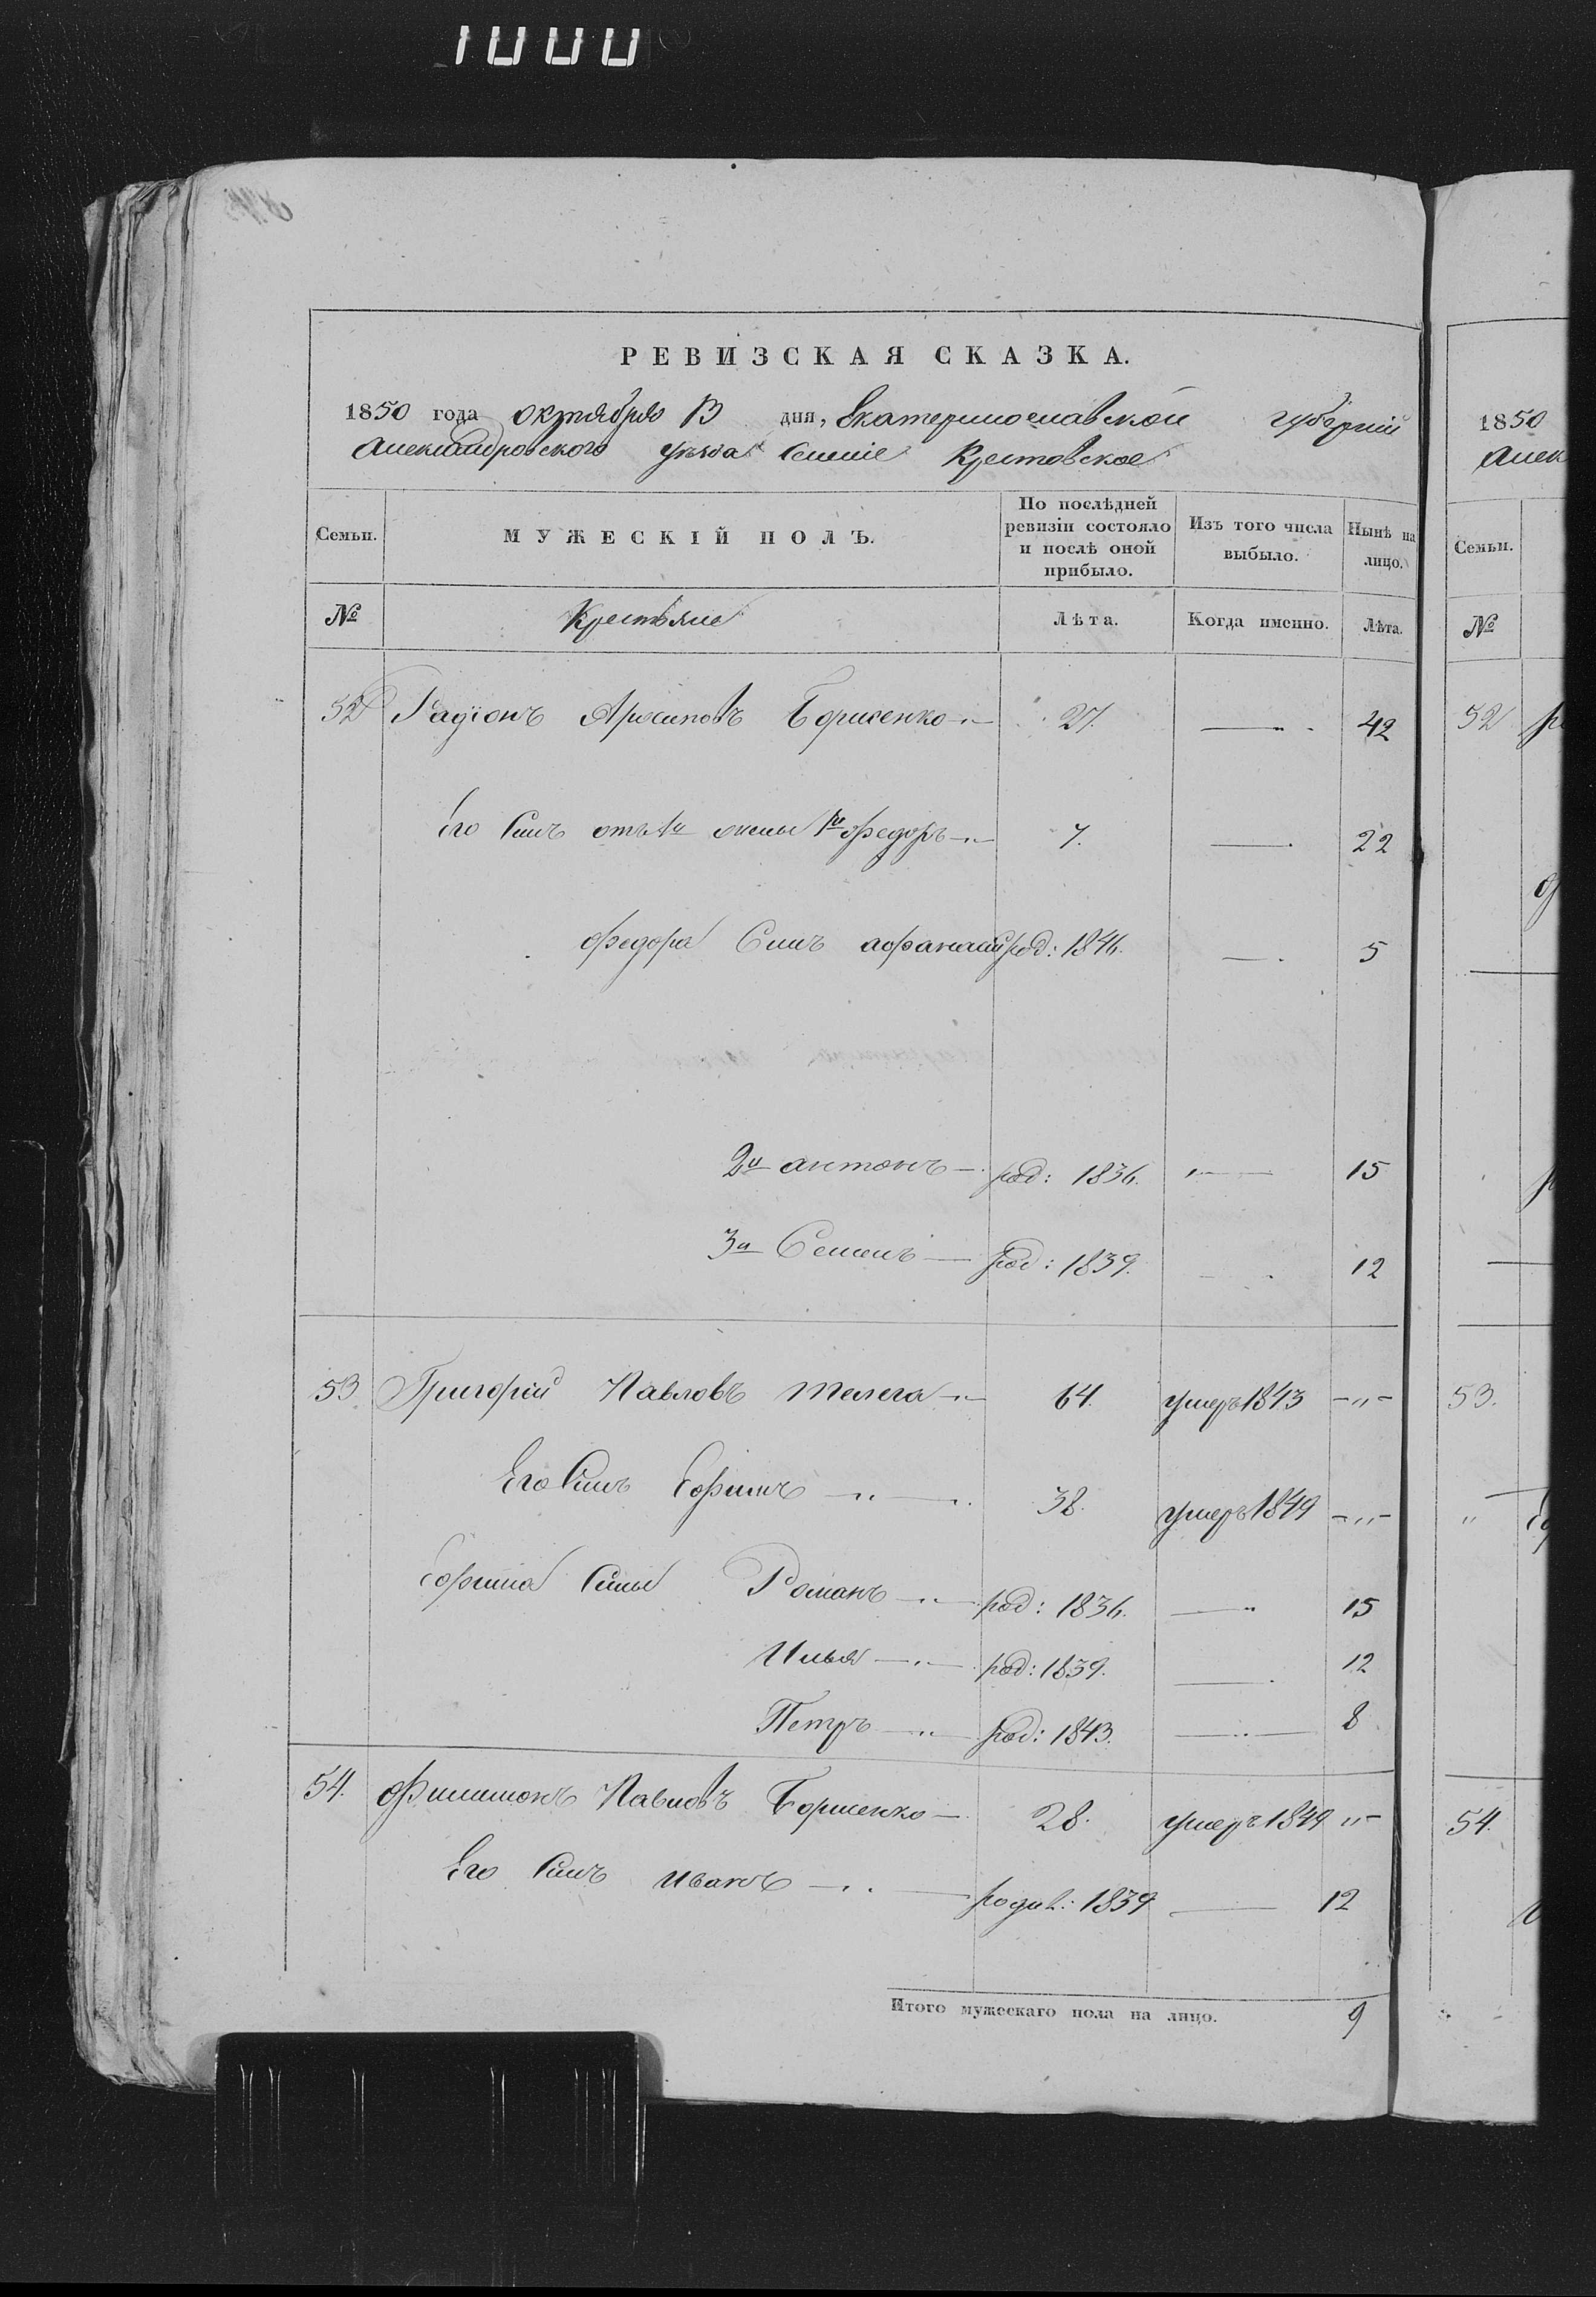 1000
РЕВИЗСКАЯ СКАЗКА.
1850 года октября 13 дня, Екатеринославской губернии
Александровского уѣзда Селенiе Крестовское
Семьи. МУЖЕСКІЙ ПОЛЪ. По послѣдней ревизіи состояло и послѣ оной прибыло. Изъ того числа выбыло. Нынѣ на лицо.
№ Крестьяне Лѣта. Когда именно. Лѣта.
52 Радіонъ Архиповъ Борисенко 27. 42
Его Сынъ отъ 1й жены 1й Федоръ 7. 22
Федора Сынъ Афанасій род: 1846. 5
2й антонъ род: 1836. 15
3й Семенъ род: 1839. 12
53 Григорій Павловъ Телега 64. умеръ 1843
Его Сынъ Ефимъ 38. умеръ 1849
Ефима Сины Романъ род: 1836. 15
Илья род: 1839. 12
Петръ род: 1843. 8
54. Филимонъ Павловъ Борисенко 28. умеръ 1849
Его Сынъ иванъ родил: 1839 12
Итого мужескаго пола на лицо. 9
1850
Алек
Семьи.
№
52
53.
54.